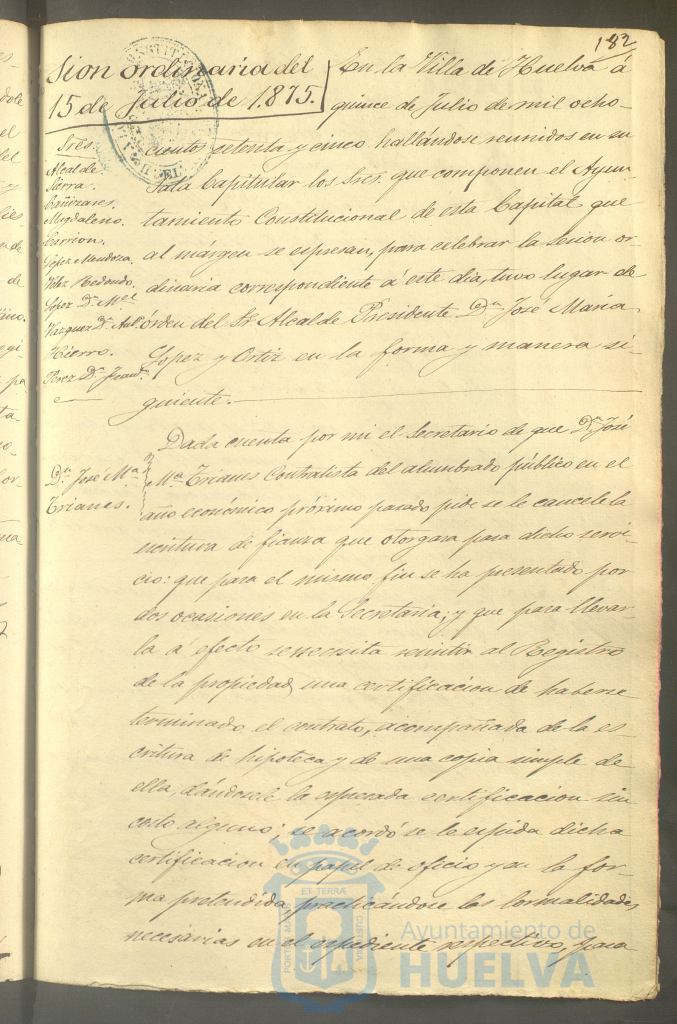 182
Sion ordinaria del
15 de Julio de 1.875.
Sres.
Alcalde
Sierra.
Eguizares.
Magdaleno.
Carrion.
Lopez Mendoza.
Velez Redondo.
Lopez Dn. Mel
Vazquez Dn. Ant.
Hierro.
Perez Dn. Juan
En la Villa de Huelva á
quince de Julio de mil ocho-
cientos setenta y cinco hallándose reunidos en su
Sala Capitular los Sres. que componen el Ayun-
tamiento Constitucional de esta Capital que
al márgen se espresan, para celebrar la sesion or-
dinaria correspondiente á este dia, tuvo lugar de
órden del Sr. Alcalde Presidente Dn José María
Lopez y Ortiz en la forma y manera si-
guiente.
Dn José Ma
Trianes.
Dada cuenta por mi el Secretario de que Dn José
Ma Trianes Contratista del alumbrado público en el
año económico próximo pasado pide se le cancele la
escritura de fianza que otorgara para dicho servi-
cio: que para el mismo fin se ha presentado por
dos ocasiones en la Secretaria; y que para llevar-
la á efecto se necesita remitir al Registro
de la propiedad una certificacion de haberse
terminado el contrato, acompañada de la es-
critura de hipoteca y de una copia simple de
ella, dándosele la espresada certificacion sin
costo alguno; se acordó se le espida dicha
certificacion en papel de oficio y en la for-
ma pretendida, practicándose las formalidades
necesarias en el espediente respectivo, para
PORTUS MARIS ET TERRÆ CUSTODIA
Ayuntamiento de
HUELVA